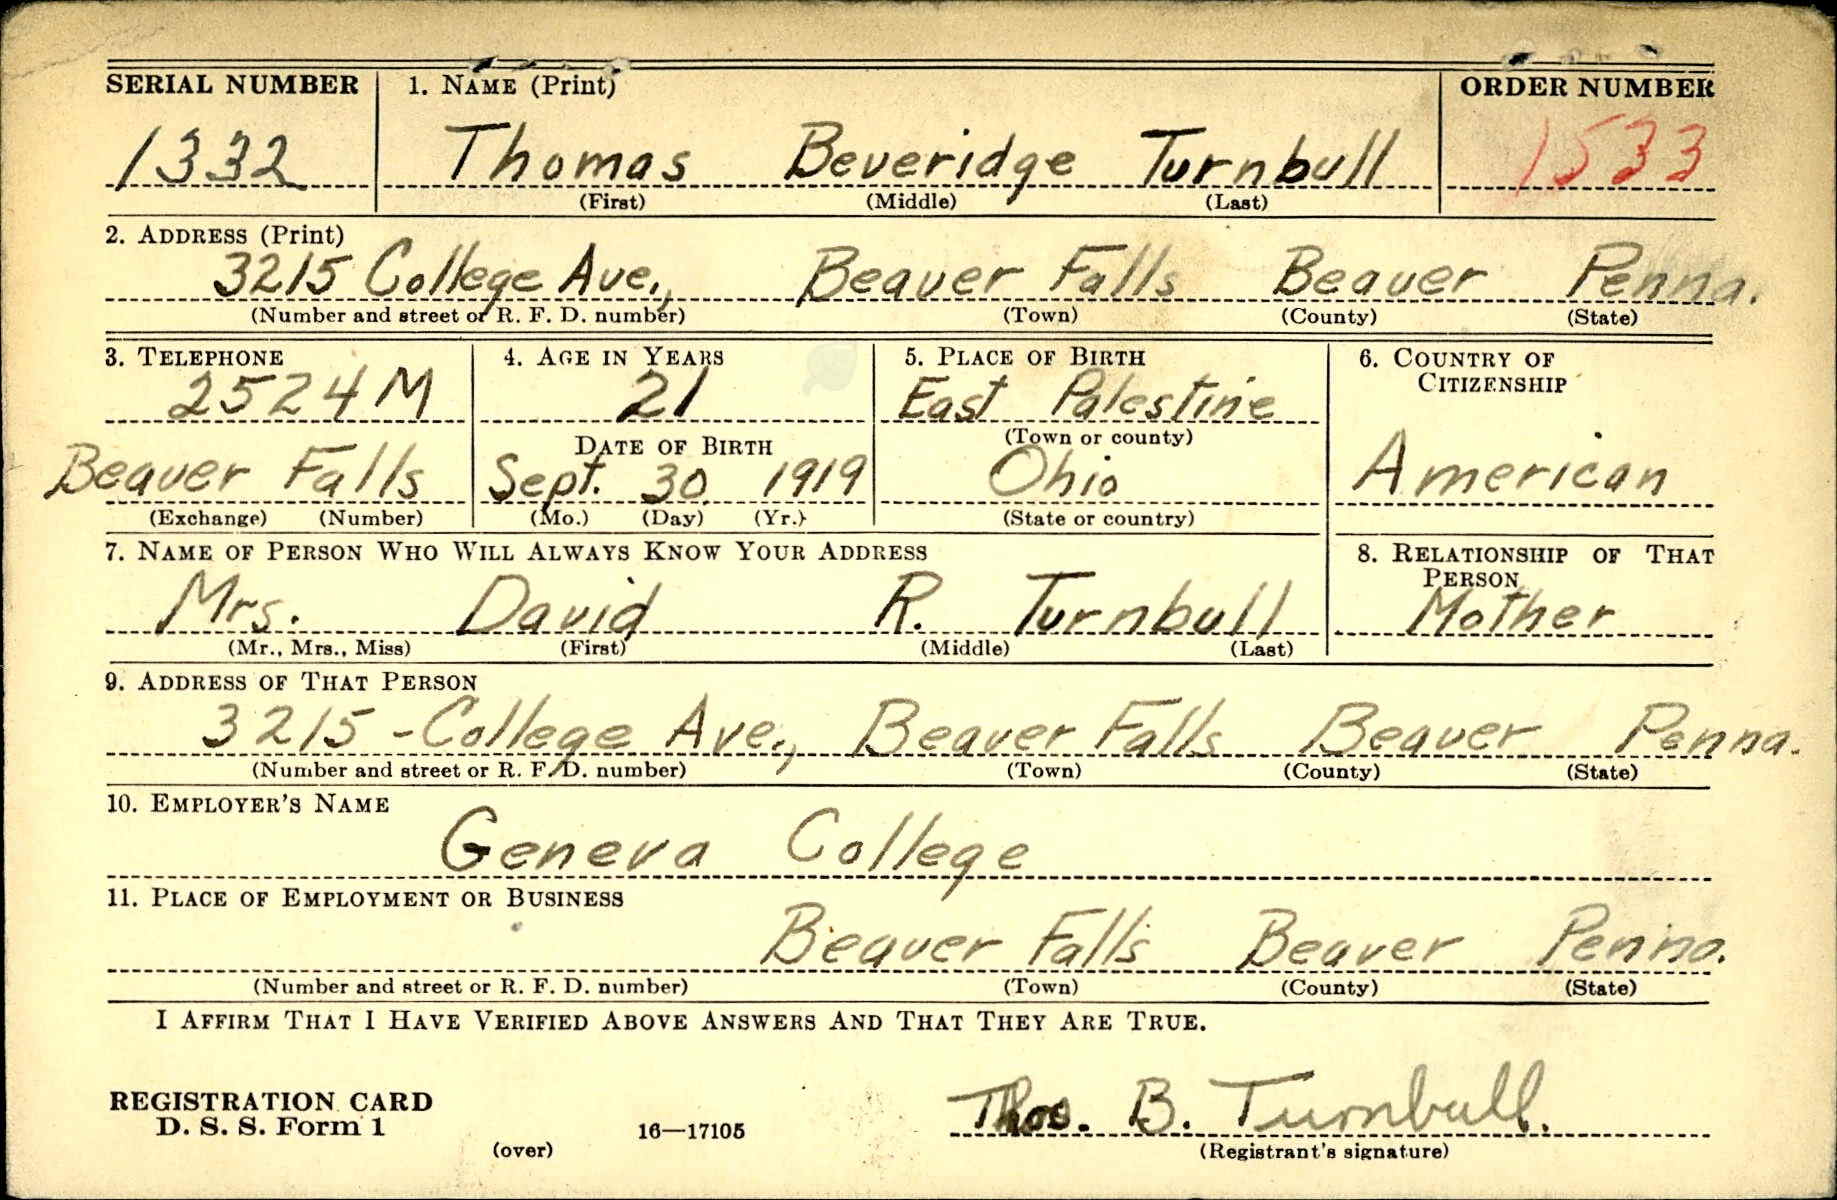 SERIAL NUMBER 1. NAME (Print) ORDER NUMBER
1332 Thomas Beveridge Turnbull 1533
(First) (Middle) (Last)
2. ADDRESS (Print)
3215 College Ave., Beaver Falls Beaver Penna.
(Number and street or R. F. D. number) (Town) (County) (State)
3. TELEPHONE 4. AGE IN YEARS 5. PLACE OF BIRTH 6. COUNTRY OF
CITIZENSHIP
2524M 21 East Palestine
DATE OF BIRTH (Town or county)
Beaver Falls Sept. 30 1919 Ohio American
(Exchange) (Number) (Mo.) (Day) (Yr.) (State or country)
7. NAME OF PERSON WHO WILL ALWAYS KNOW YOUR ADDRESS 8. RELATIONSHIP OF THAT
PERSON
Mrs. David R. Turnbull Mother
(Mr., Mrs., Miss) (First) (Middle) (Last)
9. ADDRESS OF THAT PERSON
3215 - College Ave., Beaver Falls Beaver Penna.
(Number and street or R. F. D. number) (Town) (County) (State)
10. EMPLOYER'S NAME
Geneva College
11. PLACE OF EMPLOYMENT OR BUSINESS
Beaver Falls Beaver Penna.
(Number and street or R. F. D. number) (Town) (County) (State)
I AFFIRM THAT I HAVE VERIFIED ABOVE ANSWERS AND THAT THEY ARE TRUE.
REGISTRATION CARD
D. S. S. Form 1 Thos. B. Turnbull.
(over) 16—17105 (Registrant's signature)